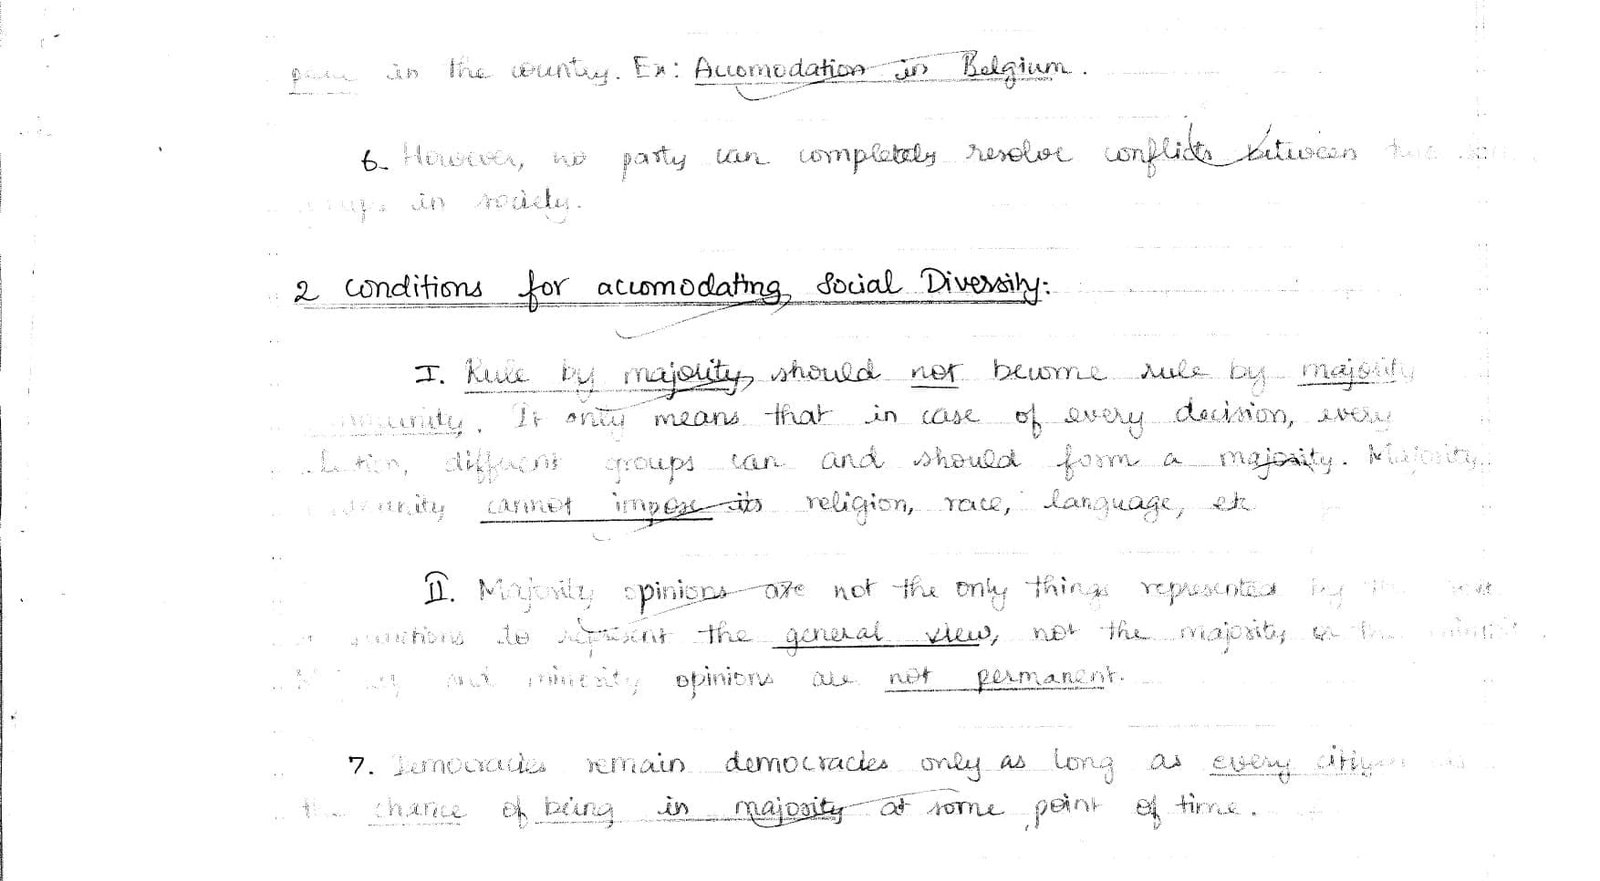 in the country. Ex: Accomodation in Belgium.
6. However, no party can completely resolve conflicts between two
in society.
2 conditions for accomodating Social Diversity:
I. Rule by majority, should not become rule by majority
It only means that in case of every decision, every
different groups can and should form a majority. Majority
cannot impose its religion, race, language, etc
II. Majority opinions are not the only things represented by the
to represent the general view, not the majority or the
and minority opinions are not permanent.
7. Democracies remain democracies only as long as every citizen
the chance of being in majority at some point of time.